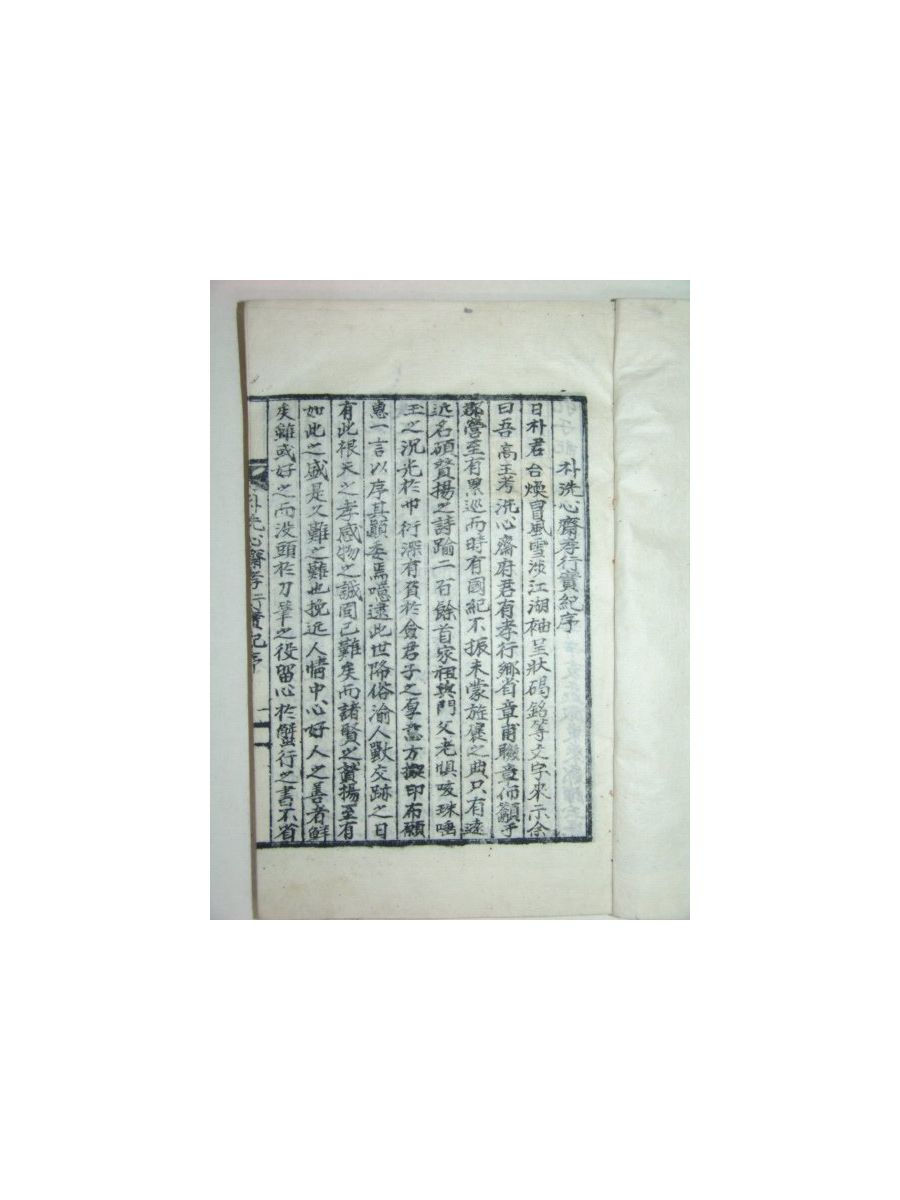 朴洗心齋孝行實紀序
日朴君台煥冒風雪涉江湖袖呈狀碣銘等文字來示余
曰吾高王考洗心齋府君有孝行鄉省章甫聯章佈籲于
郡營至有黑巡而時有國紀不振未蒙旌褒之典只有遠
近名碩贊揚之詩踰二百餘首家祖與門父老惧咳珠唾
玉之沉光於巾衍深有賁於僉君子之厚誼方擬印布願
惠一言以序其顚委焉噫逮此世降俗渝人獸交跡之日
有此根天之孝感物之誠固已難矣而諸賢之贊揚至有
如此之盛是又難之難也挽近人情中心好人之善者鮮
矣雖或好之而沒頭於刀筆之役留心於蟹行之書不省
朴洗心齋孝行實紀序
一